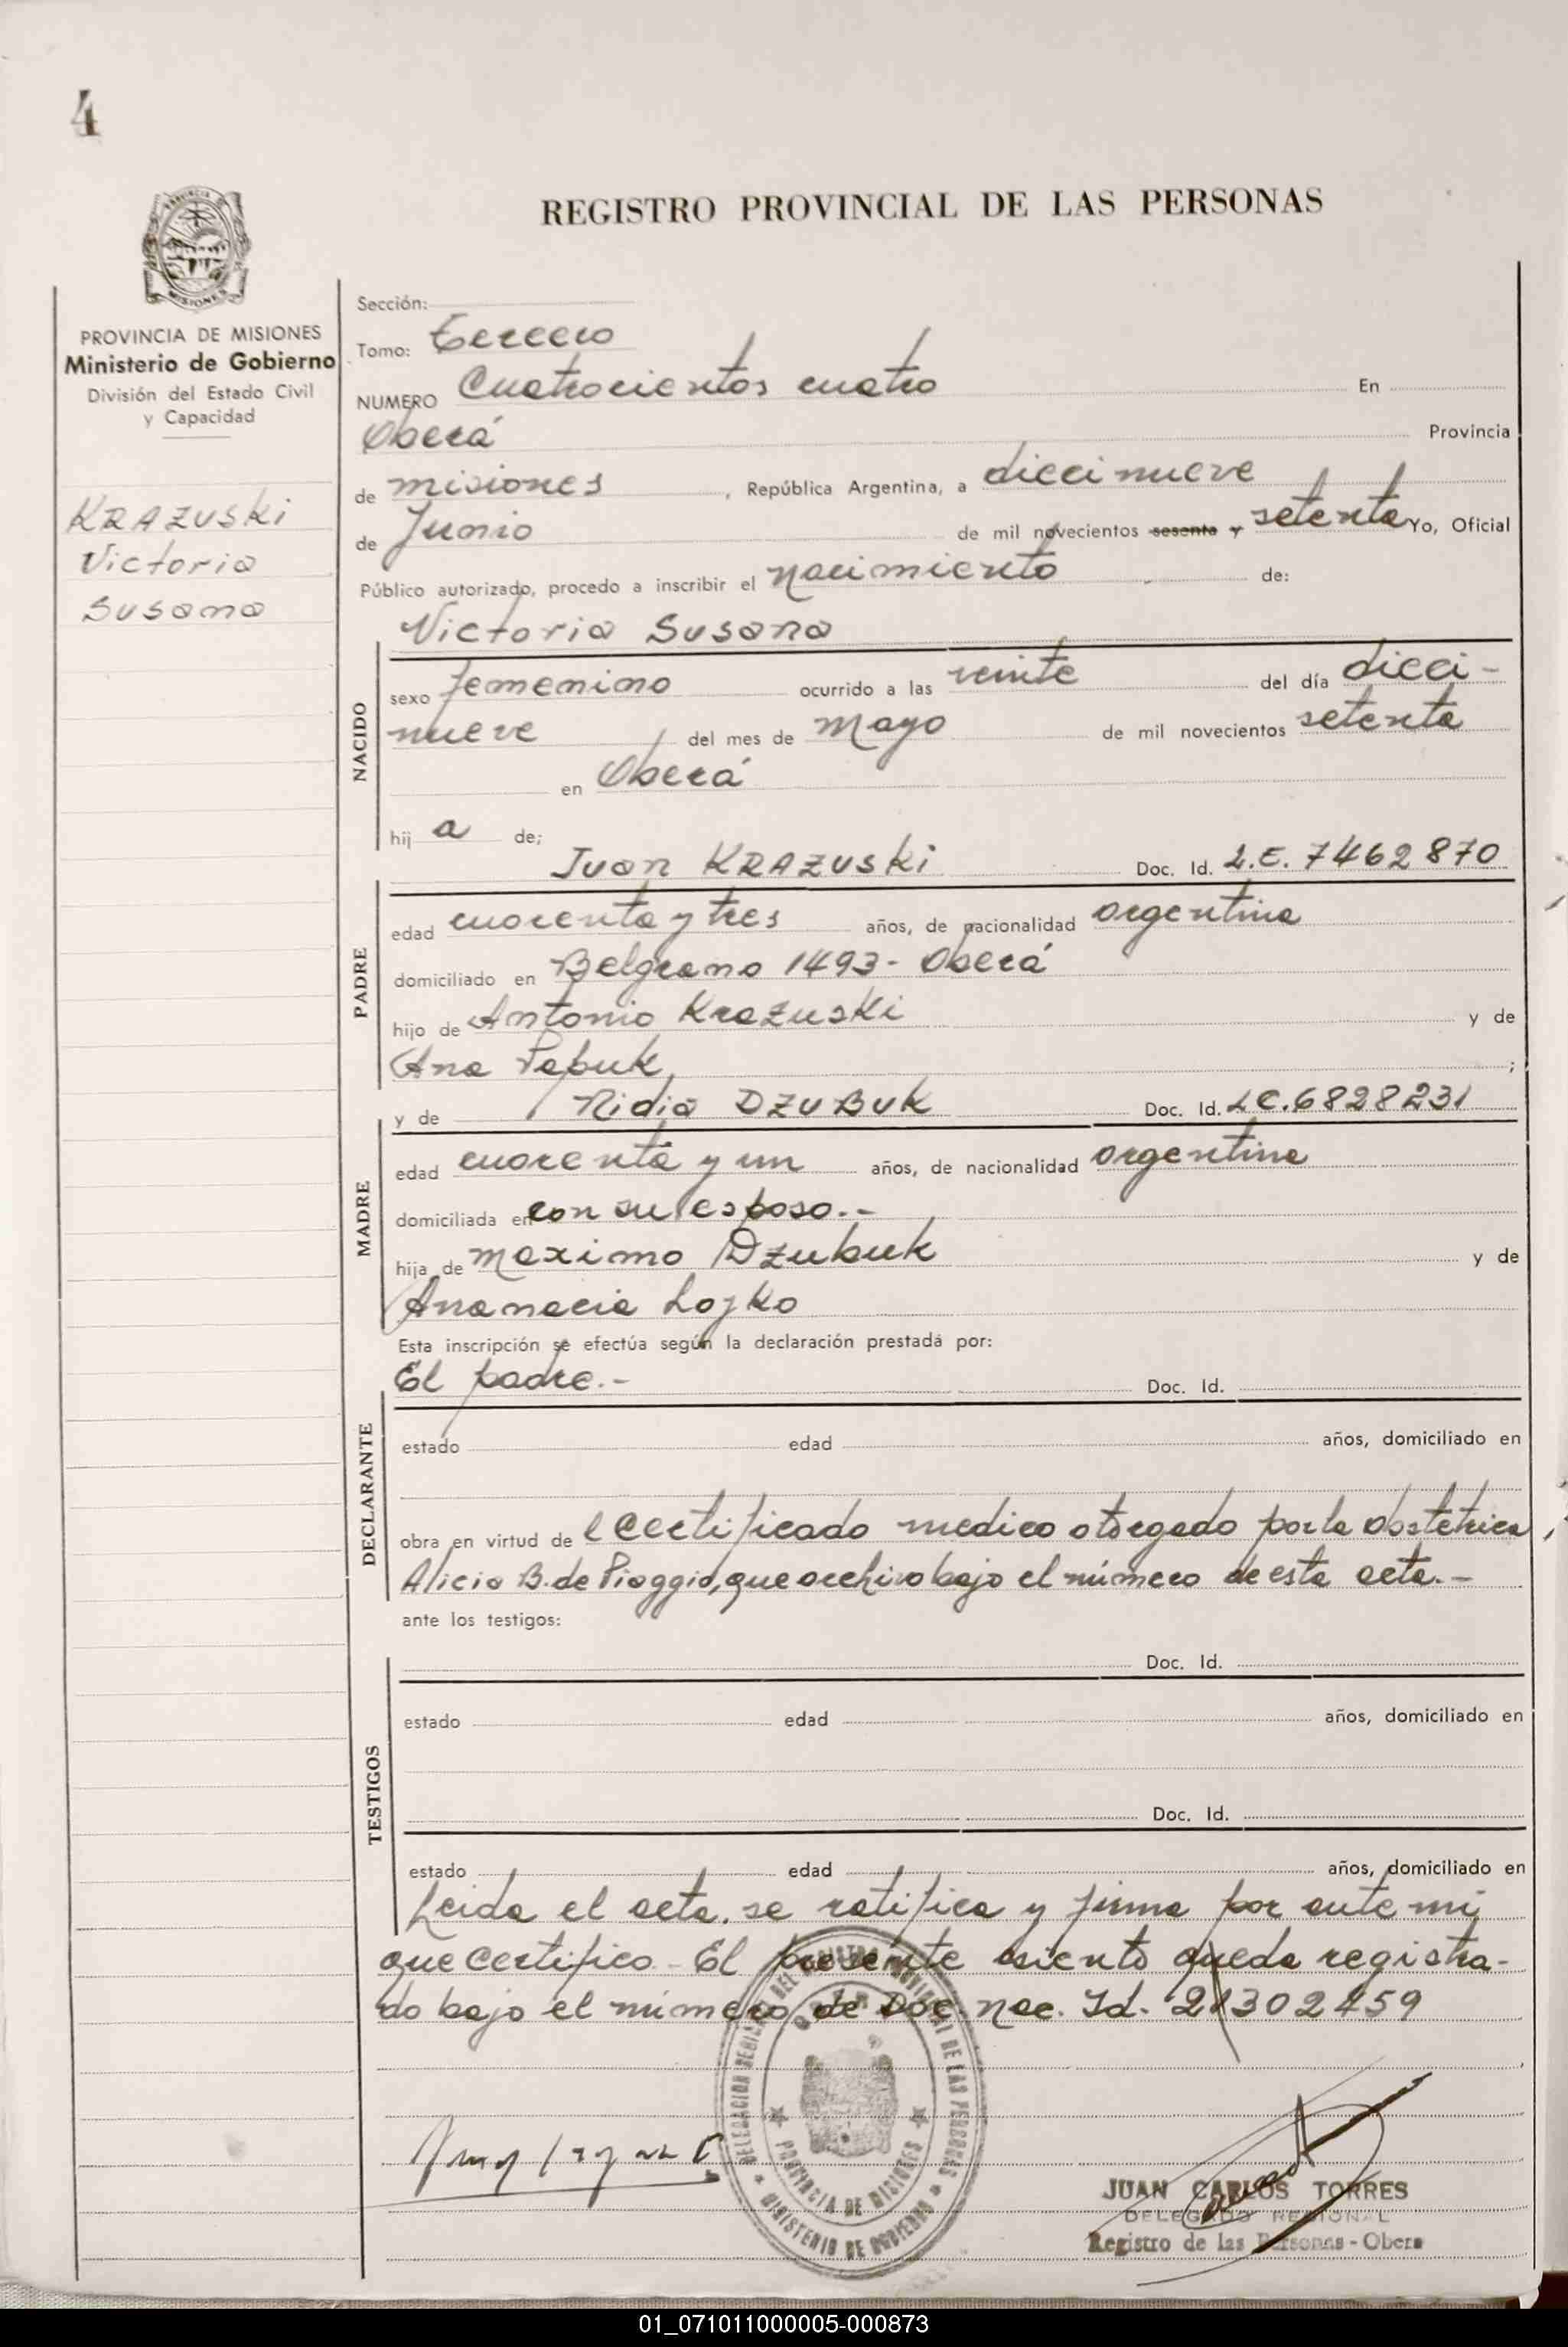 4
REGISTRO PROVINCIAL DE LAS PERSONAS
PROVINCIA DE MISIONES
Ministerio de Gobierno
División del Estado Civil
y Capacidad
KRAZUSKi
Victoria
Susana
Sección:
Tomo: Tercero
NUMERO Cuatrocientos cuatro En
Oberá Provincia
de misiones, República Argentina, a diecinueve
de Junio de mil novecientos sesenta y setenta Yo, Oficial
Público autorizado, procedo a inscribir el nacimiento de:
Victoria Susana
NACIDO
sexo femenino ocurrido a las veinte del día dieci-
nueve del mes de mayo de mil novecientos setenta
en Oberá
hij a de;
Juan KRAZUSKi Doc. Id. L.E. 7462870
PADRE
edad cuarenta y tres años, de nacionalidad argentina
domiciliado en Belgrano 1493- Oberá
hijo de Antonio Krazuski y de
Ana Pabuk ;
y de Nidia DZUBUK Doc. Id. LC.6828231
MADRE
edad cuarenta y un años, de nacionalidad argentina
domiciliada en con su esposo.-
hija de maximo Dzubuk y de
Anamacia Lojko
Esta inscripción se efectúa según la declaración prestada por:
El padre.- Doc. Id.
DECLARANTE
estado edad años, domiciliado en
obra en virtud de l certificado medico otorgado por la obstetrica
Alicia B. de Piaggio, que archivo bajo el número de esta acta.-
ante los testigos:
Doc. Id.
TESTIGOS
estado edad años, domiciliado en
Doc. Id.
estado edad años, domiciliado en
Leida el acta. se ratifica y firma por ante mi
que certifico - El presente asiento queda registra-
do bajo el número de Doc. nac. Id. 21302459
DELEGACION REGIONAL DEL REGISTRO PROVINCIAL DE LAS PERSONAS
OBERA
PROVINCIA DE MISIONES
MINISTERIO DE GOBIERNO
JUAN CARLOS TORRES
DELEGADO REGIONAL
Registro de las Personas - Obera
01_071011000005-000873